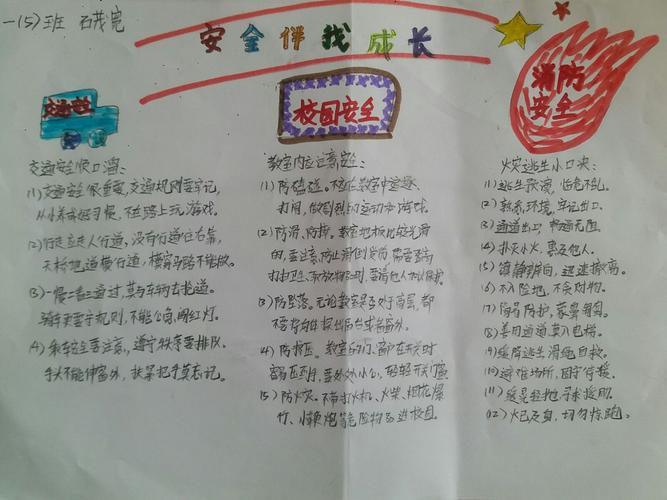 一(5)班 石茂宽
安全伴我成长
交通安全
校园安全
消防
安全
交通安全顺口溜:
(1)交通安全很重要,交通规则要牢记,
从小养成好习惯,不在路上玩游戏。
(2)行走应走人行道,没有行道往右靠,
天桥地道横行道,横穿马路不能做。
(3)一慢二看三通过,莫与车辆去抢道。
骑车更要守规则,不能心急闯红灯。
(4)乘车安全要注意,遵守秩序要排队。
手头不能伸窗外,扶紧把手莫忘记。
教室内应注意安全:
(1)防磕碰。不应在教室中追逐、
打闹,做剧烈的运动和游戏。
(2)防滑、防摔。教室地板比较光滑
的,要注意防止滑倒受伤,需要登高
打扫卫生、取放物品时,要请他人加以保护。
(3)防坠落。无论教室是否处于高层,都
不要将身体探出阳台或者窗外。
(4)防挤压。教室的门、窗户在开关时
容易压到手,要处处小心,轻轻开关门窗
(5)防火灾。不带打火机、火柴、烟花爆
竹、小鞭炮等危险物品进校园。
火灾逃生小口决:
(1)逃生预演,临危不乱。
(2)熟悉环境,牢记出口。
(3)通道出口,畅通无阻。
(4)扑灭小火,惠及他人。
(5)镇静辨向,迅速撤离。
(6)不入险地,不贪财物。
(7)简易防护,蒙鼻匍匐。
(8)善用通道莫入电梯。
(9)缓降逃生滑绳自救。
(10)避难场所,固守待援。
(11)缓晃轻抛,寻求援助。
(12)火已及身,切勿惊跑。